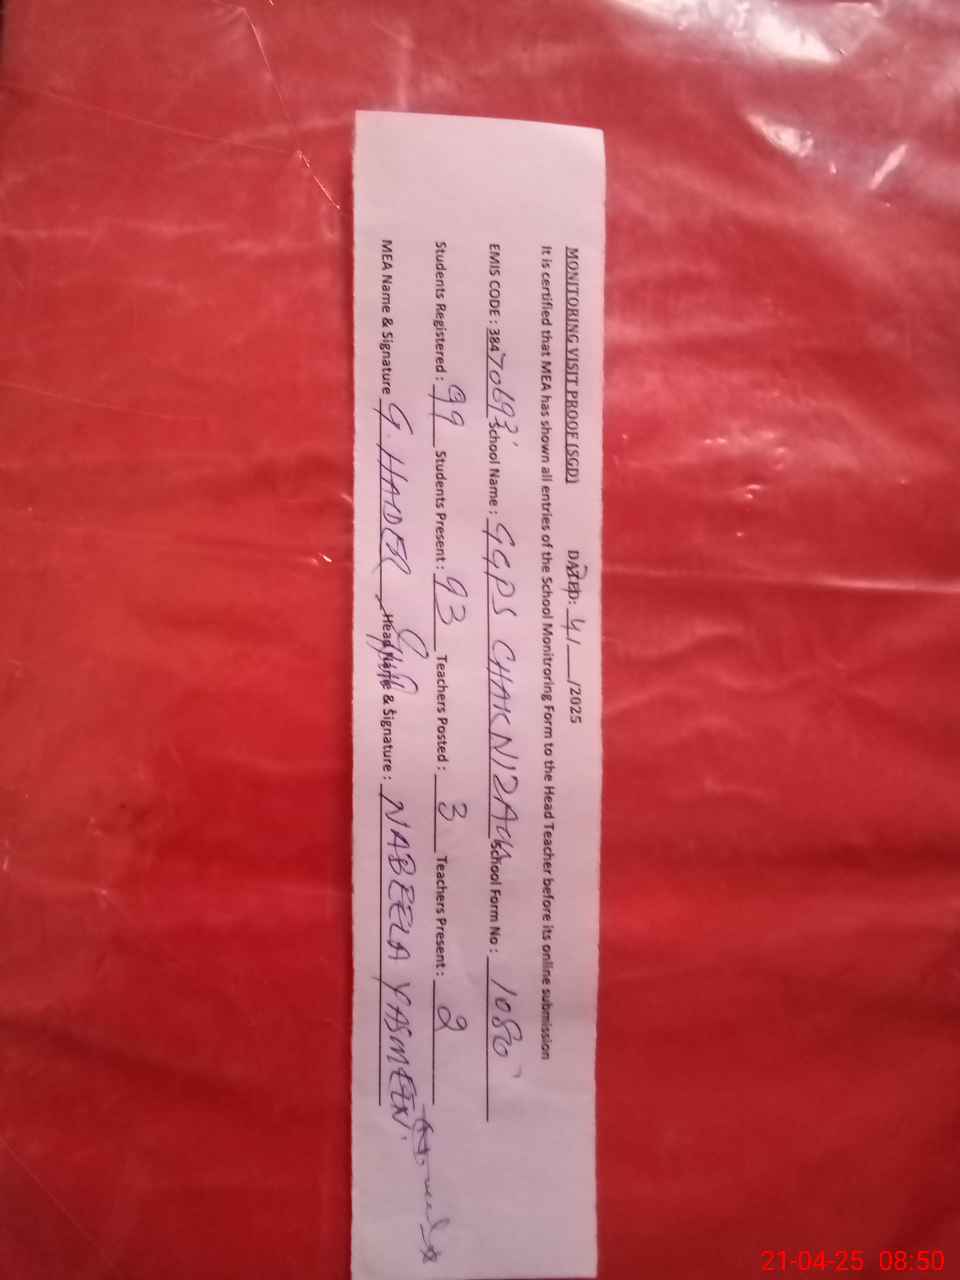 MONITORING VISIT PROOF (SGD) DATED: 4/___/2025
It is certified that MEA has shown all entries of the School Monitroring Form to the Head Teacher before its online submission
EMIS CODE : 38470693 School Name : GGPS CHAK NIZAM School Form No : 1080
Students Registered : 99 Students Present : 93 Teachers Posted : 3 Teachers Present : 2
MEA Name & Signature G. HAIDER Head Name & Signature : NABEELA YASMEEN
21-04-25 08:50